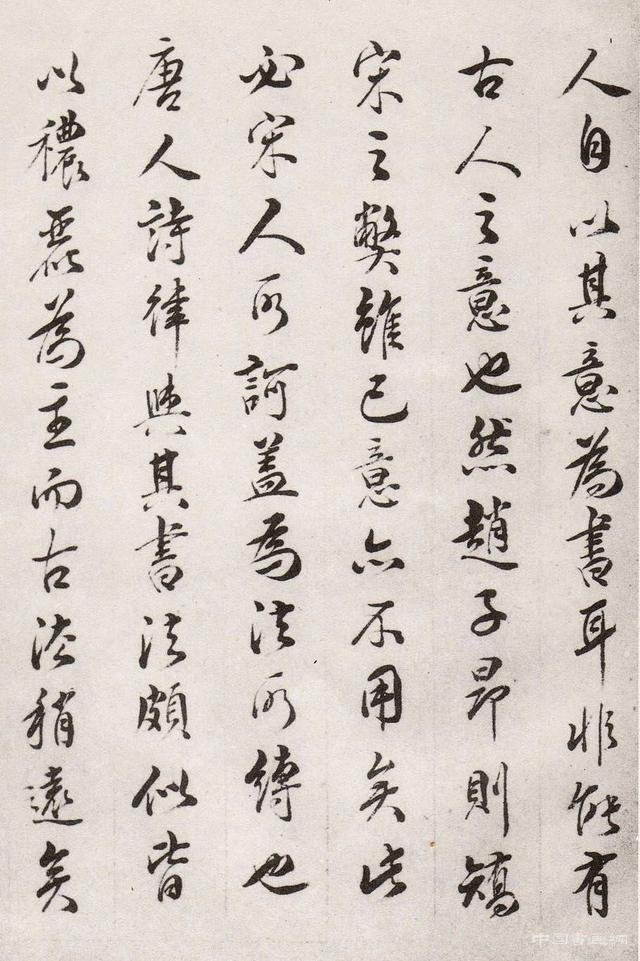 人自以其意為書耳非能有
古人之意也然趙子昂則矯
宋之弊雖己意亦不用矣此
必宋人所訶蓋為法所縛也
唐人詩律與其書法頗似皆
以穠麗為主而古法稍遠矣
中国書画網